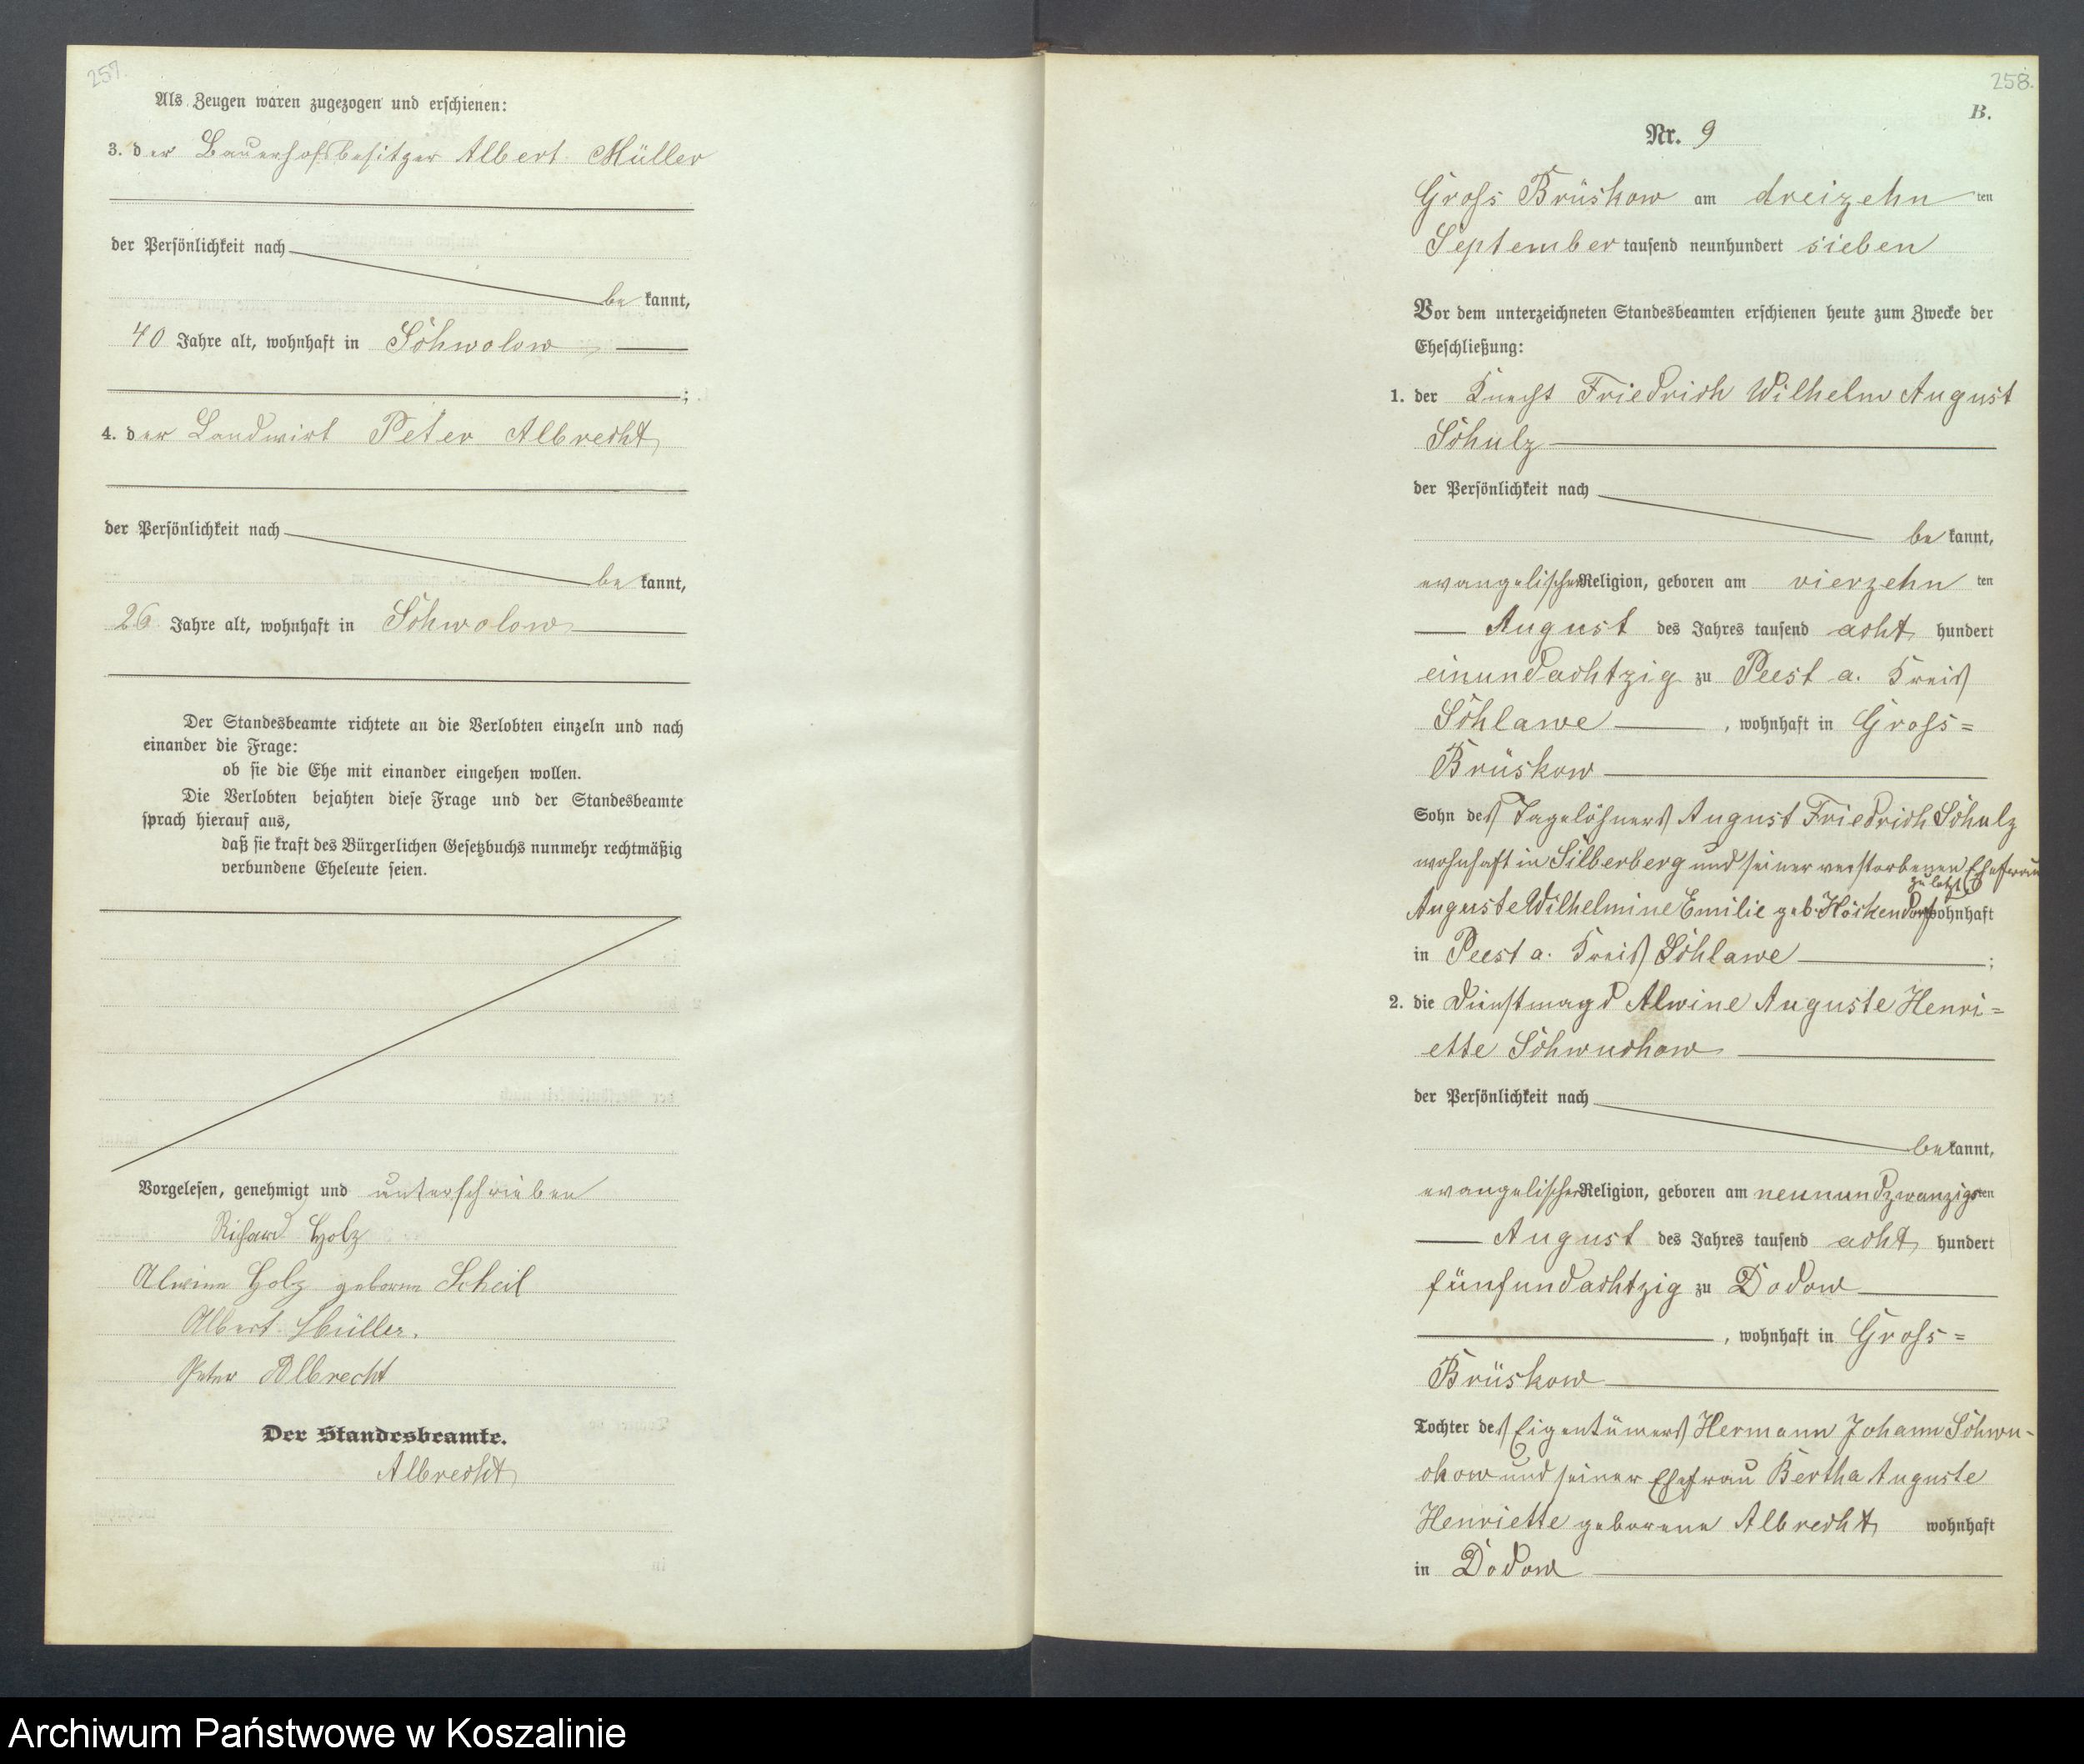 257.
Als Zeugen waren zugezogen und erschienen:
3. der Bauerhofsbesitzer Albert Müller
der Persönlichkeit nach
bekannt,
40 Jahre alt, wohnhaft in Schwolow
;
4. der Landwirt Peter Albrecht
der Persönlichkeit nach
bekannt,
26 Jahre alt, wohnhaft in Schwolow
Der Standesbeamte richtete an die Verlobten einzeln und nach
einander die Frage:
ob sie die Ehe mit einander eingehen wollen.
Die Verlobten bejahten diese Frage und der Standesbeamte
sprach hierauf aus,
daß sie kraft des Bürgerlichen Gesetzbuchs nunmehr rechtmäßig
verbundene Eheleute seien.
Vorgelesen, genehmigt und unterschrieben
Richard Holz
Alwine Holz geborene Scheil
Albert Müller.
Peter Albrecht
Der Standesbeamte.
Albrecht
258.
B.
Nr. 9
Gross Brüskow am dreizehnten
September tausend neunhundert sieben
Vor dem unterzeichneten Standesbeamten erschienen heute zum Zwecke der
Eheschließung:
1. der Knecht Friedrich Wilhelm August
Schulz
der Persönlichkeit nach
bekannt,
evangelischer Religion, geboren am vierzehnten
August des Jahres tausend acht hundert
einundachtzig zu Peest a. Kreis
Schlawe, wohnhaft in Gross=
Brüskow
Sohn des Tagelöhners August Friedrich Schulz
wohnhaft in Silberberg und seiner verstorbenen Ehefrau
zuletzt
Auguste Wilhelmine Emilie geb. Höckendorf wohnhaft
in Peest a. Kreis Schlawe;
2. die Dienstmagd Alwine Auguste Henri=
ette Schwuchow
der Persönlichkeit nach
bekannt,
evangelischer Religion, geboren am neunundzwanzigsten
August des Jahres tausend acht hundert
fünfundachtzig zu Dodow
, wohnhaft in Gross=
Brüskow
Tochter des Eigentümers Hermann Johann Schwu-
chow und seiner Ehefrau Bertha Auguste
Henriette geborene Albrecht wohnhaft
in Dodow
Archiwum Państwowe w Koszalinie